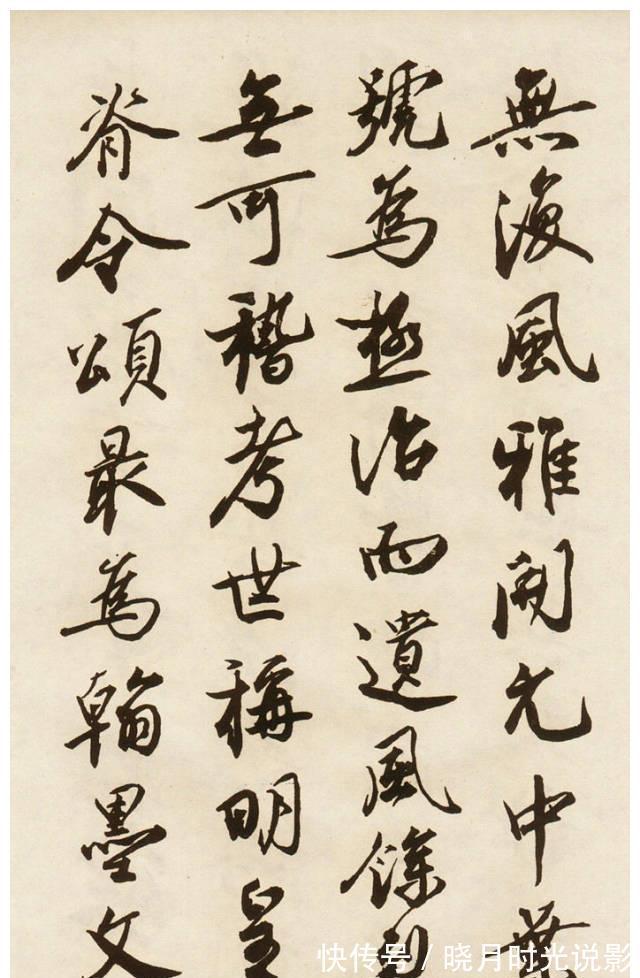 無復風雅開元中
號為極治而遺風餘
無可稽考世稱明皇
脊令頌最為翰墨文
快传号/晓月时光说影